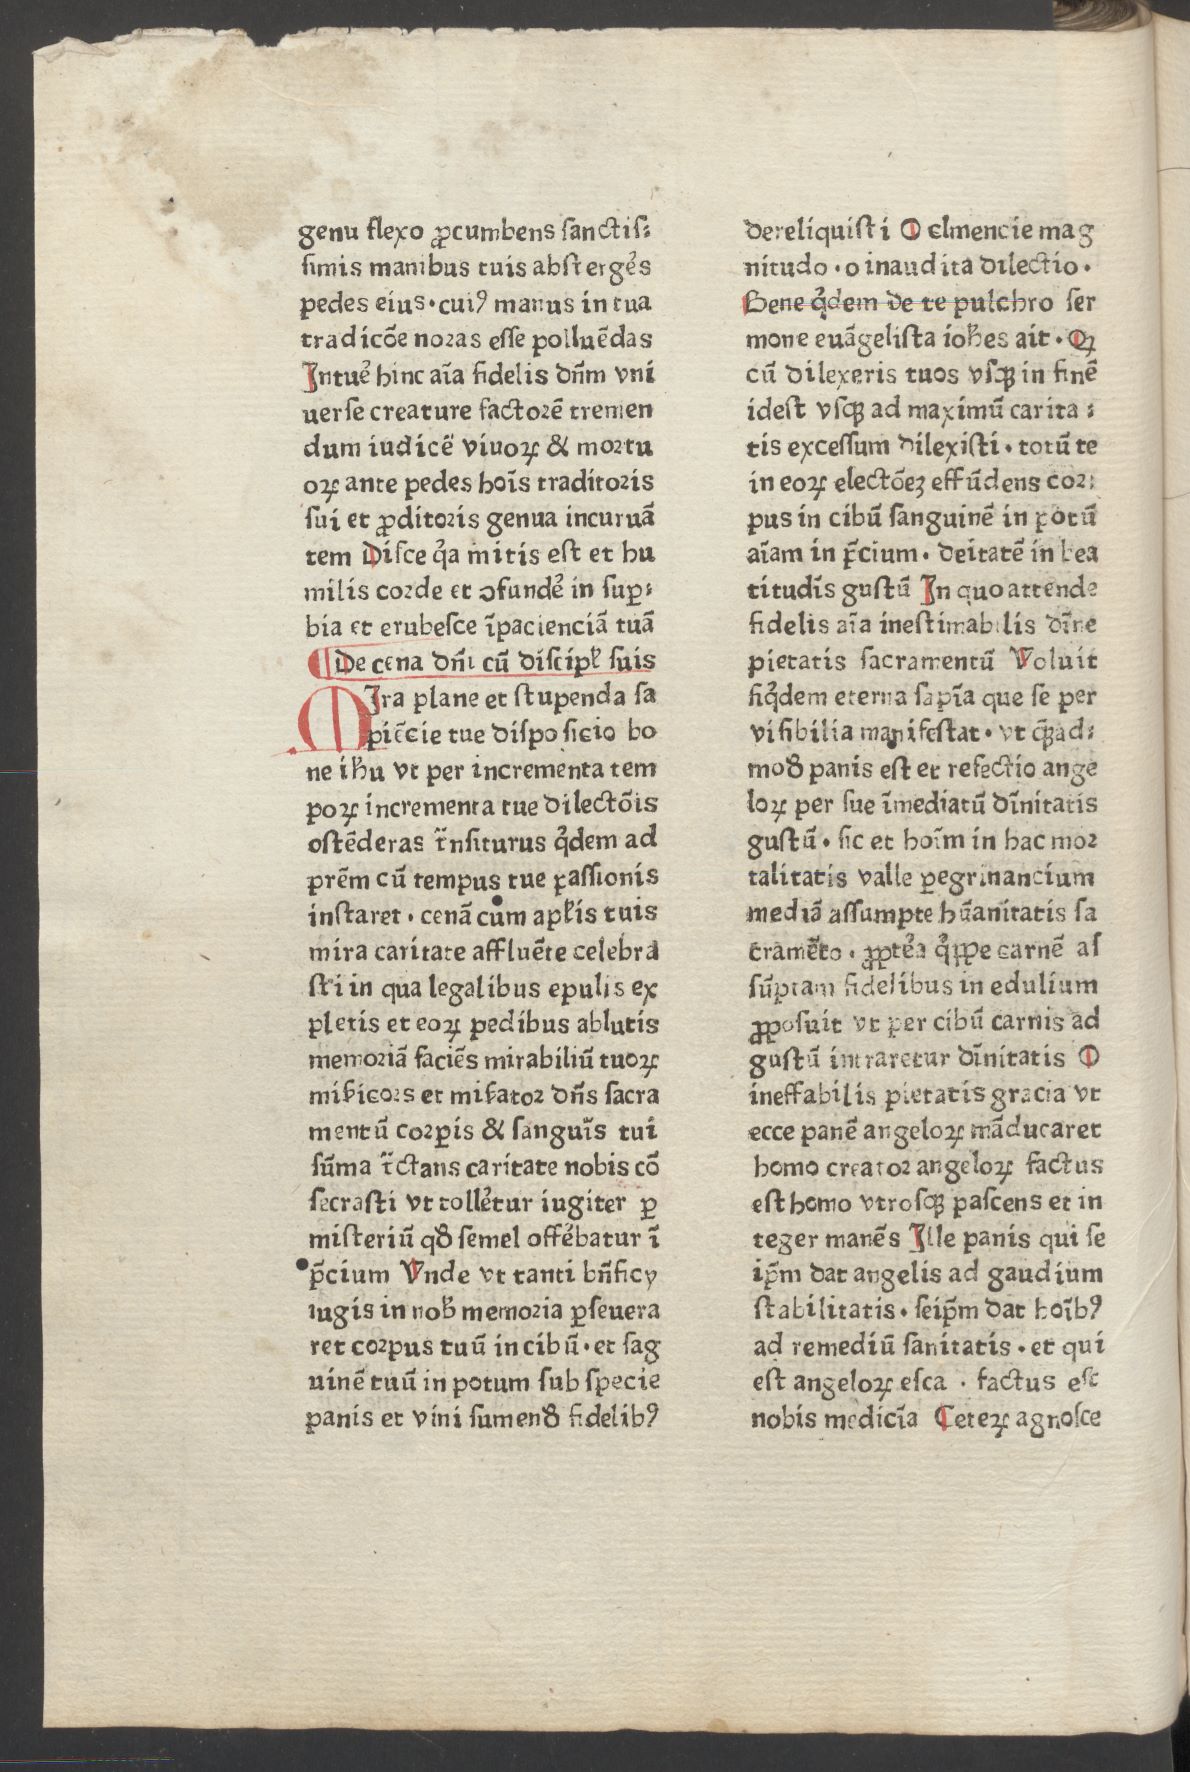 genu flexo ꝓcumbens sanctis⹀
simis manibus tuis absterges̉
pedes eius · cuiꝰ manus in tua
tradicōe noꝛas esse polluēdas
Intue᷒ hinc aīa fidelis dn̄m vni
uerse creature factoꝛē tremen
dum iudicē viuoꝝ & moꝛtu
oꝝ ante pedes hoīs traditoꝛis
sui et ꝓditoꝛis genua incuruā
tem Disce qa̓ mitis est et hu
milis coꝛde et ↄfunde᷒ in sup̄⹀
bia et erubesce īpacienciā tuā
De cena dn̄i cū discipƚ suis
MIra plane et stupenda sa
piēcie tue disposicio bo
ne iħu vt per incrementa tem
poꝝ incrementa tue dilectōis
ostēderas tn̄siturus qd̓em ad
prēm cū tempus tue passionis
instaret · cenā cum apƚis tuis
mira caritate affluēte celebra
sti in qua legalibus epulis ex
pletis et eoꝝ pedibus ablutis
memoriā faciēs mirabiliū tuoꝝ
miẜicoꝛs et miẜatoꝛ dn̄s sacra
mentū coꝛꝑis & sanguīs tui
sūma tc̄tans caritate nobis cō
secrasti vt tolle᷒tur iugiter ꝑ
misteriū qd̕ semel offe᷒batur ī
p̄cium Vnde vt tanti bn̄ficy
iugis in nob̕ memoꝛia ꝑseuera
ret coꝛpus tuū in cibū · et sag
uinē tuū in potum sub specie
panis et vini sumend̕ fidelibꝰ
dereliquisti O clmencie mag
nitudo · o inaudita dilectio ·
Bene qd̓em de te pulchro ser
mone euāgelista ioħes ait · Qꝝ
cū dilexeris tuos vsqꝫ in finē
idest vsqꝫ ad maximū carita⹀
tis excessum dilexisti · totū te
in eoꝝ electōeꝫ effūdens coꝛ⹀
pus in cibū sanguinē in potū
aīam in p̄cium · deitatē in bea
titudīs gustū In quo attende
fidelis aīa inestimabilis dīne
pietatis sacramentū Voluit
siqd̓em eterna sapīa que se per
visibilia manifestat · vt qꝫad⹀
mod̕ panis est et refectio ange
loꝝ per sue īmediatū dīnitatis
gustū · sic et hoīm in hac moꝛ
talitatis valle ꝑegrinancium
mediā assumpte hūanitatis sa
cramēto · ꝓpte᷒a qi̓ppe carnē as
sūptam fidelibus in edulium
ꝓposuit vt per cibū carnis ad
gustū intraretur dīnitatis O
ineffabilis pietatis gracia vt
ecce panē angeloꝝ māducaret
homo creatoꝛ angeloꝝ factus
est homo vtrosqꝫ pascens et in
teger manēs Ille panis qui se
ip̄m dat angelis ad gaudium
stabilitatis · seip̄m dat hoībꝰ
ad remediū sanitatis · et qui
est angeloꝝ esca · factus est
nobis medicīa Ceteꝝ agnosce